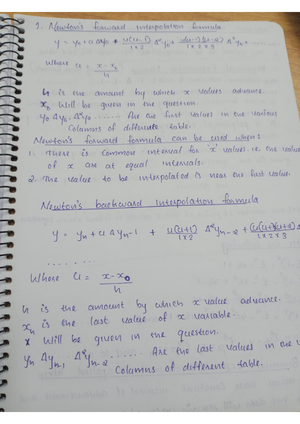 1. Newton's forward interpolation formula
y = y₀ + u Δy₀ + u(u-1)/1×2 Δ²y₀ + u(u-1)(u-2)/1×2×3 Δ³y₀ ...
Where u = x - x₀/h
h is the amount by which x values advance.
x₀ Will be given in the question.
y₀ Δy₀, Δ²y₀ ...... Are the first values in the various
Columns of different table.
Newton's forward formula can be used when:
1. There is common interval for 'x' values. i.e. the values
of x are at equal intervals.
2. The value to be interpolated is near the first value.
Newton's backward interpolation formula
y = yn + u Δ yn-1 + u(u+1)/1×2 Δ²yn-2 + u(u+1)(u+2)/1×2×3 Δ
......
Where u = x - x₀/h
h is the amount by which x value advance.
xn is the last value of x variable.
x Will be given in the question.
yn Δyn-1 Δ²yn-2 ...... Are the last values in the v
Columns of different table.